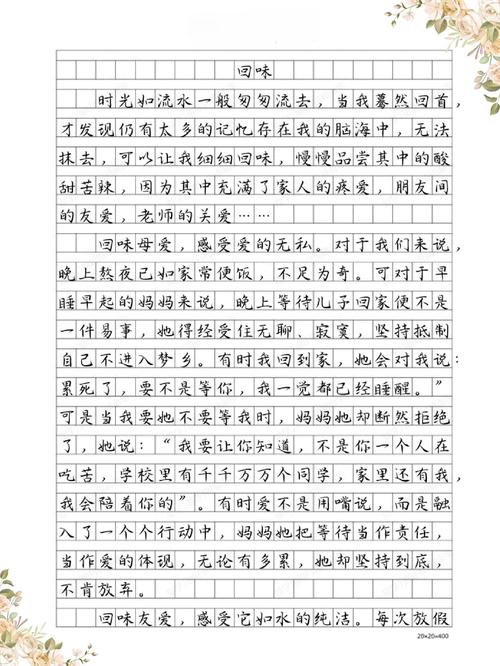 回味
时光如流水一般匆匆流去，当我蓦然回首，
才发现仍有太多的记忆存在我的脑海中，无法
抹去，可以让我细细回味，慢慢品尝其中的酸
甜苦辣，因为其中充满了家人的疼爱，朋友间
的友爱，老师的关爱……
回味母爱，感受爱的无私。对于我们来说，
晚上熬夜已如家常便饭，不足为奇。可对于早
睡早起的妈妈来说，晚上等待儿子回家便不是
一件易事，她得经受住无聊、寂寞，坚持抵制
自己不进入梦乡。有时我回到家，她会对我说：
累死了，要不是等你，我一觉都已经睡醒。”
可是当我要她不要等我时，妈妈她却断然拒绝
了，她说：“我要让你知道，不是你一个人在
吃苦，学校里有千千万万个同学，家里还有我，
我会陪着你的”。有时爱不是用嘴说，而是融
入了一个个行动中，妈妈她把等待当作责任，
当作爱的体现，无论有多累，她却坚持到底，
不肯放弃。
回味友爱，感受它如水的纯洁。每次放假
20×20=400